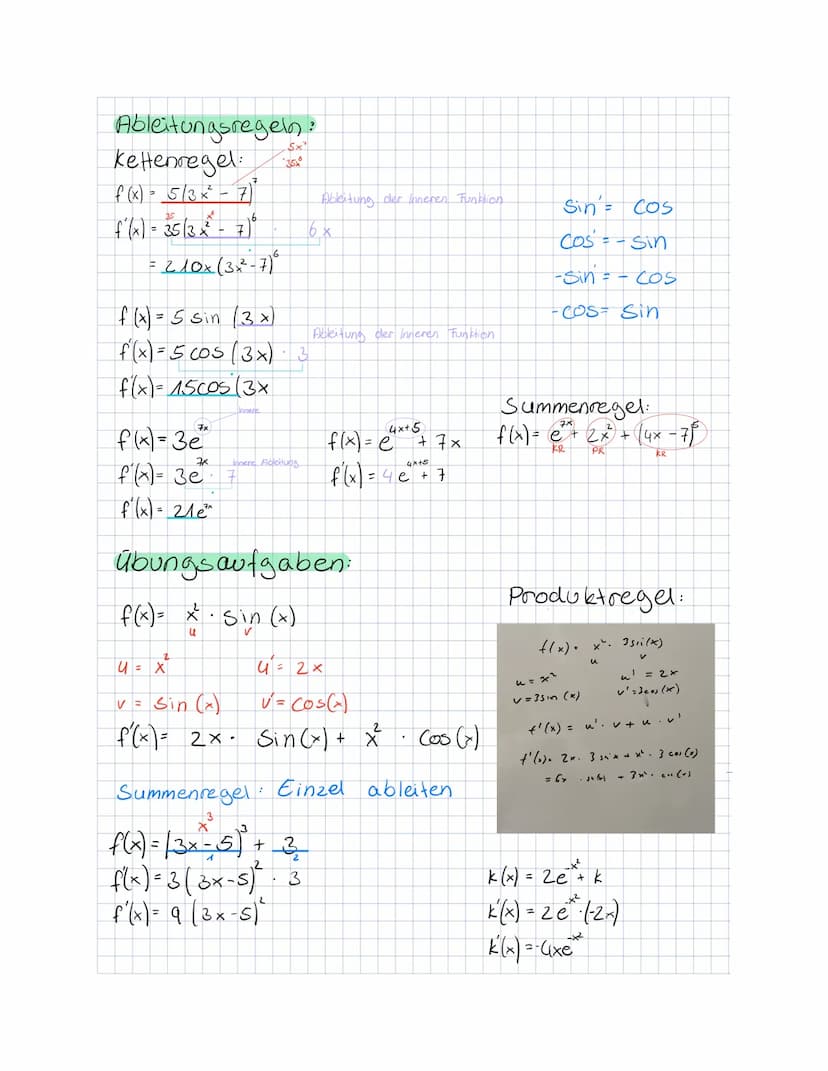 Ableitungsregeln:
Kettenregel:
5x⁷
35x⁶
f(x) = 5(3x² - 7)⁷
Ableitung der Inneren Funktion
35 x⁶
f'(x) = 35(3x² - 7)⁶ · 6x
= 210x(3x²-7)⁶
sin' = cos
cos' = - sin
-sin' = - cos
-cos = sin
f(x) = 5 sin (3x)
Ableitung der Inneren Funktion
f'(x) = 5 cos (3x) · 3
f'(x) = 15cos(3x
Innere
f(x) = 3e⁷ˣ
f'(x) = 3e⁷ˣ · 7
Innere Ableitung
f'(x) = 21e⁷ˣ
f(x) = e⁴ˣ⁺⁵ + 7x
f'(x) = 4e⁴ˣ⁺⁵ + 7
Summenregel:
f(x) = e⁷ˣ + 2x² + (4x - 7)⁵
KR PR KR
Übungsaufgaben:
f(x) = x² · sin(x)
u v
u = x² u' = 2x
v = sin(x) v' = cos(x)
f'(x) = 2x · sin(x) + x² · cos(x)
Produktregel:
f(x) = x² · 3sin(x)
u v
u = x² u' = 2x
v = 3sin(x) v' = 3cos(x)
f'(x) = u' · v + u · v'
f'(x) = 2x · 3 sin x + x² · 3 cos(x)
= 6x · sin(x) + 3x² · cos(x)
Summenregel: Einzel ableiten
x³
f(x) = (3x - 5)³ + 3
1 2
f'(x) = 3(3x-5)² · 3
f'(x) = 9(3x-5)²
k(x) = 2e⁻ˣ² + k
k'(x) = 2e⁻ˣ² · (-2x)
k'(x) = -4xe⁻ˣ²